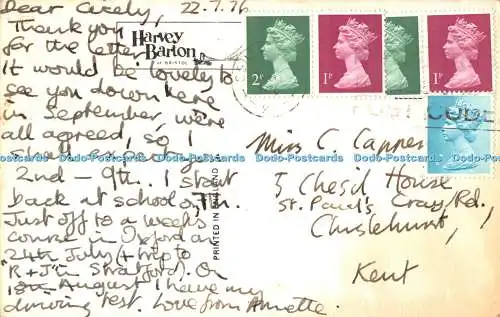 Dear Cicely, 22.7.76
Thank you
for the letter.
It would be lovely to
see you down here
in September, we're
all agreed, so I
2nd – 9th. I start
back at school on 7th.
Just off to a weeks
course in Oxford on
24th July (+ trip to
"R + J" in Stratford). On
18th August I have my
driving test. Love from Annette.
Harvey
Barton
of BRISTOL
PRINTED IN ENGLAND
2P
1P
1P
Miss C. Capper
5 Chesil House
St. Paul's Cray Rd.
Chislehurst,
Kent
Dodo-Postcards Dodo-Postcards Dodo-Postcards Dodo-Postcards Dodo-Postcards